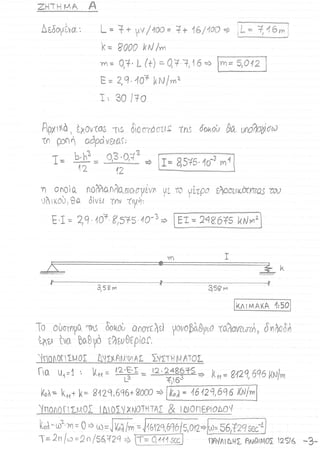 ΖΗΤΗΜΑ Α
Δεδομένα: L = 7 + μν/100 = 7 + 16/100 ⇒ L = 7,16 m
k = 8000 kN/m
m = 0,7·L (t) = 0,7·7,16 ⇒ m = 5,012
E = 2,9·10⁷ kN/m²
I: 30/70
Αρχικά, έχοντας τις διαστάσεις της δοκού θα υπολογίσω
τη ροπή αδράνειας:
I = b·h³/12 = 0,3·0,7³/12 ⇒ I = 8,575·10⁻³ m⁴
η οποία πολλαπλασιασμένη με το μέτρο ελαστικότητας του
υλικού, θα δίνει την τιμή:
E·I = 2,9·10⁷·8,575·10⁻³ ⇒ EI = 248675 kNm²
m I
k
3,58m 3,58m
ΚΛΙΜΑΚΑ 1:50
Το σύστημα της δοκού αποτελεί μονοβάθμιο ταλαντωτή, δηλαδή
έχει ένα βαθμό ελευθερίας.
ΥΠΟΛΟΓΙΣΜΟΣ ΔΥΣΚΑΜΨΙΑΣ ΣΥΣΤΗΜΑΤΟΣ
Για u₁=1: k₁₁ = 12·E·I/L³ = 12·248675/7,16³ ⇒ k₁₁ = 8129,696 kN/m
kολ = k₁₁ + k = 8129,696 + 8000 ⇒ kολ = 16129,696 kN/m
ΥΠΟΛΟΓΙΣΜΟΣ ΙΔΙΟΣΥΧΝΟΤΗΤΑΣ & ΙΔΙΟΠΕΡΙΟΔΟΥ
kολ - ω²·m = 0 ⇒ ω = √kολ/m = √16129,696/5,012 ⇒ ω = 56,729 sec⁻¹
T = 2π/ω = 2π/56,729 ⇒ T = 0,111 sec
12516 -3-